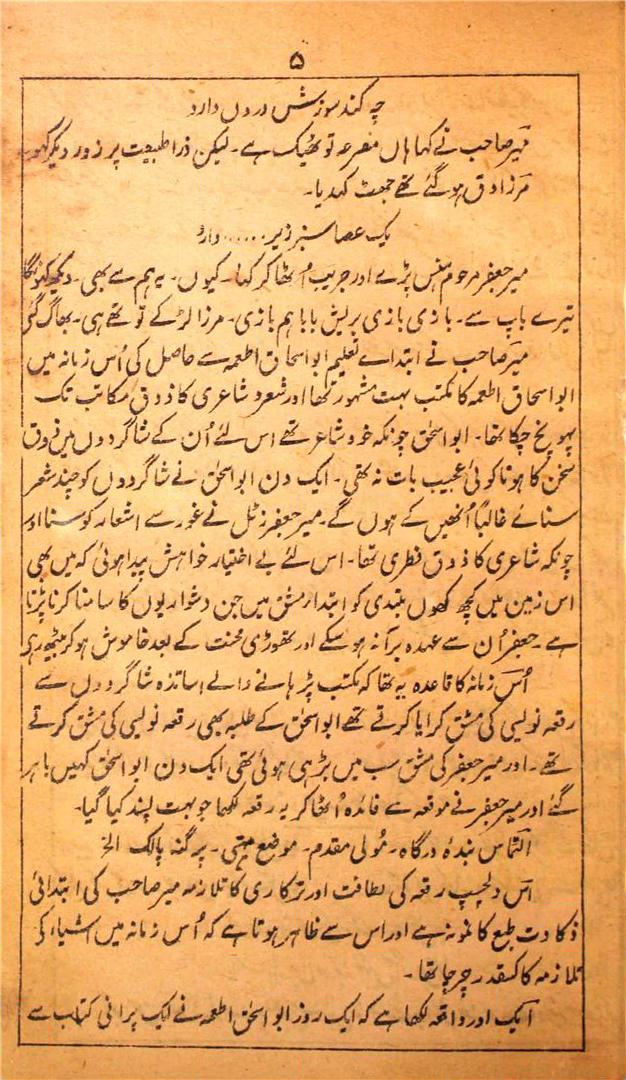 ۵
چہ کند سوزشش دروں دارد
میر صاحب نے کہا ہاں مصرعہ تو ٹھیک ہے۔ لیکن ذرا طبیعت پر زور دیکر کہو
مرزا دق ہو گئے تھے جھٹ کہدیا۔
یک عصا سبز زیر...... دارد
میر جعفر مرحوم ہنس پڑے اور جریب اُٹھا کر کہا۔ کیوں۔ یہ ہم سے بھی۔ دیکھ کہونگا
تیرے باپ سے۔ بازی بازی بریش بابا ہم بازی۔ مرزا لڑکے تو تھے ہی۔ بھاگ گئے
میر صاحب نے ابتداے تعلیم ابو اسحاق اطعمہ سے حاصل کی اُس زمانہ میں
ابو اسحاق اطعمہ کا مکتب بہت مشہور تھا اور شعر و شاعری کا ذوق مکاتب تک
پہونچ چکا تھا۔ ابو اسحٰق چونکہ خود شاعر تھے اس لئے اُن کے شاگردوں میں ذوق
سخن کا ہونا کوئی عجیب بات نہ تھی۔ ایک دن ابو اسحٰق نے شاگردوں کو چند شعر
سنائے غالباً اُنھیں کے ہوں گے۔ میر جعفر زٹل نے غور سے اشعار کو سنا اور
چونکہ شاعری کا ذوق فطری تھا۔ اس لئے بے اختیار خواہش پیدا ہوئی کہ میں بھی
اس زمین میں کچھ کہوں مبتدی کو ابتدار مشق میں جن دشواریوں کا سامنا کرنا پڑتا
ہے۔ جعفر اُن سے عہدہ برآ نہ ہو سکے اور تھوڑی محنت کے بعد خاموش ہو کر بیٹھ رہے
اُس زمانہ کا قاعدہ یہ تھا کہ مکتب پڑہانے والے اساتذہ شاگردوں سے
رقعہ نویسی کی مشق کرایا کرتے تھے ابو اسحٰق کے طلبہ بھی رقعہ نویسی کی مشق کرتے
تھے۔ اور میر جعفر کی مشق سب میں بڑہی ہوئی تھی ایک دن ابو اسحٰق کہیں باہر
گئے اور میر جعفر نے موقعہ سے فائدہ اُٹھا کر یہ رقعہ لکھا جو بہت پسند کیا گیا۔
التماس بندہ درگاہ۔ مُولی مقدم۔ موضع میتی۔ پرگنہ پالک الخ
اس دلچسپ رقعہ کی لطافت اور ترکاری کا تلازمہ میر صاحب کی ابتدائی
ذکاوت طبع کا نمونہ ہے اور اس سے ظاہر ہوتا ہے کہ اُس زمانہ میں اشیاء کی
تلازمہ کا کسقدر چرچا تھا۔
ایک اور واقعہ لکھا ہے کہ ایک روز ابو اسحٰق اطعمہ نے ایک پرانی کتاب سے